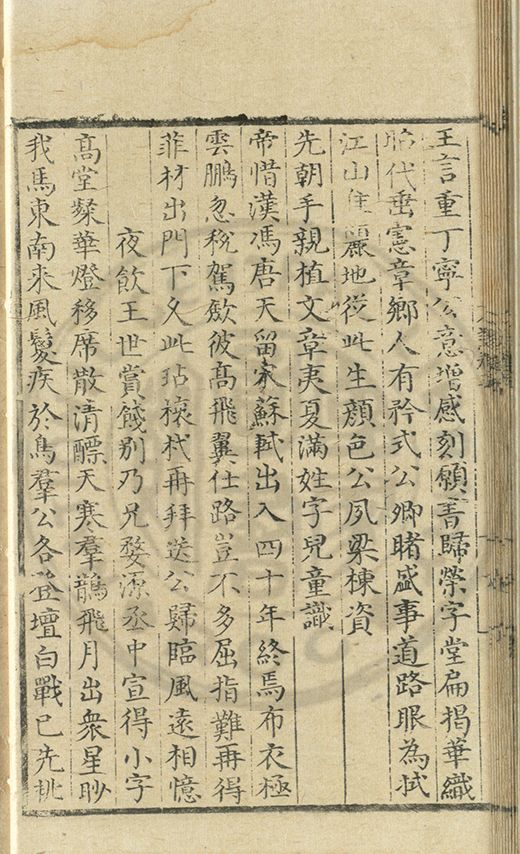 王言重丁寧公意增感刻願書歸榮字堂扁揭華織
昭代垂憲章鄉人有矜式公卿睹盛事道路眼為拭
江山佳麗地從此生顔色公夙梁棟資
先朝手親植文章夷夏滿姓字兒童識
帝惜漢馮唐天留宋蘇軾出入四十年終焉布衣極
雲鵬忽稅駕歛彼高飛翼仕路豈不多屈指難再得
菲材出門下久此玷榱杙再拜送公歸臨風遠相憶
夜飲王世賞餞别乃兄婺源丞中宣得小字
高堂粲華燈移席散清醥天寒羣鵲飛月出衆星眇
我馬東南來風鬉疾於鳥羣公各登壇白戰已先挑